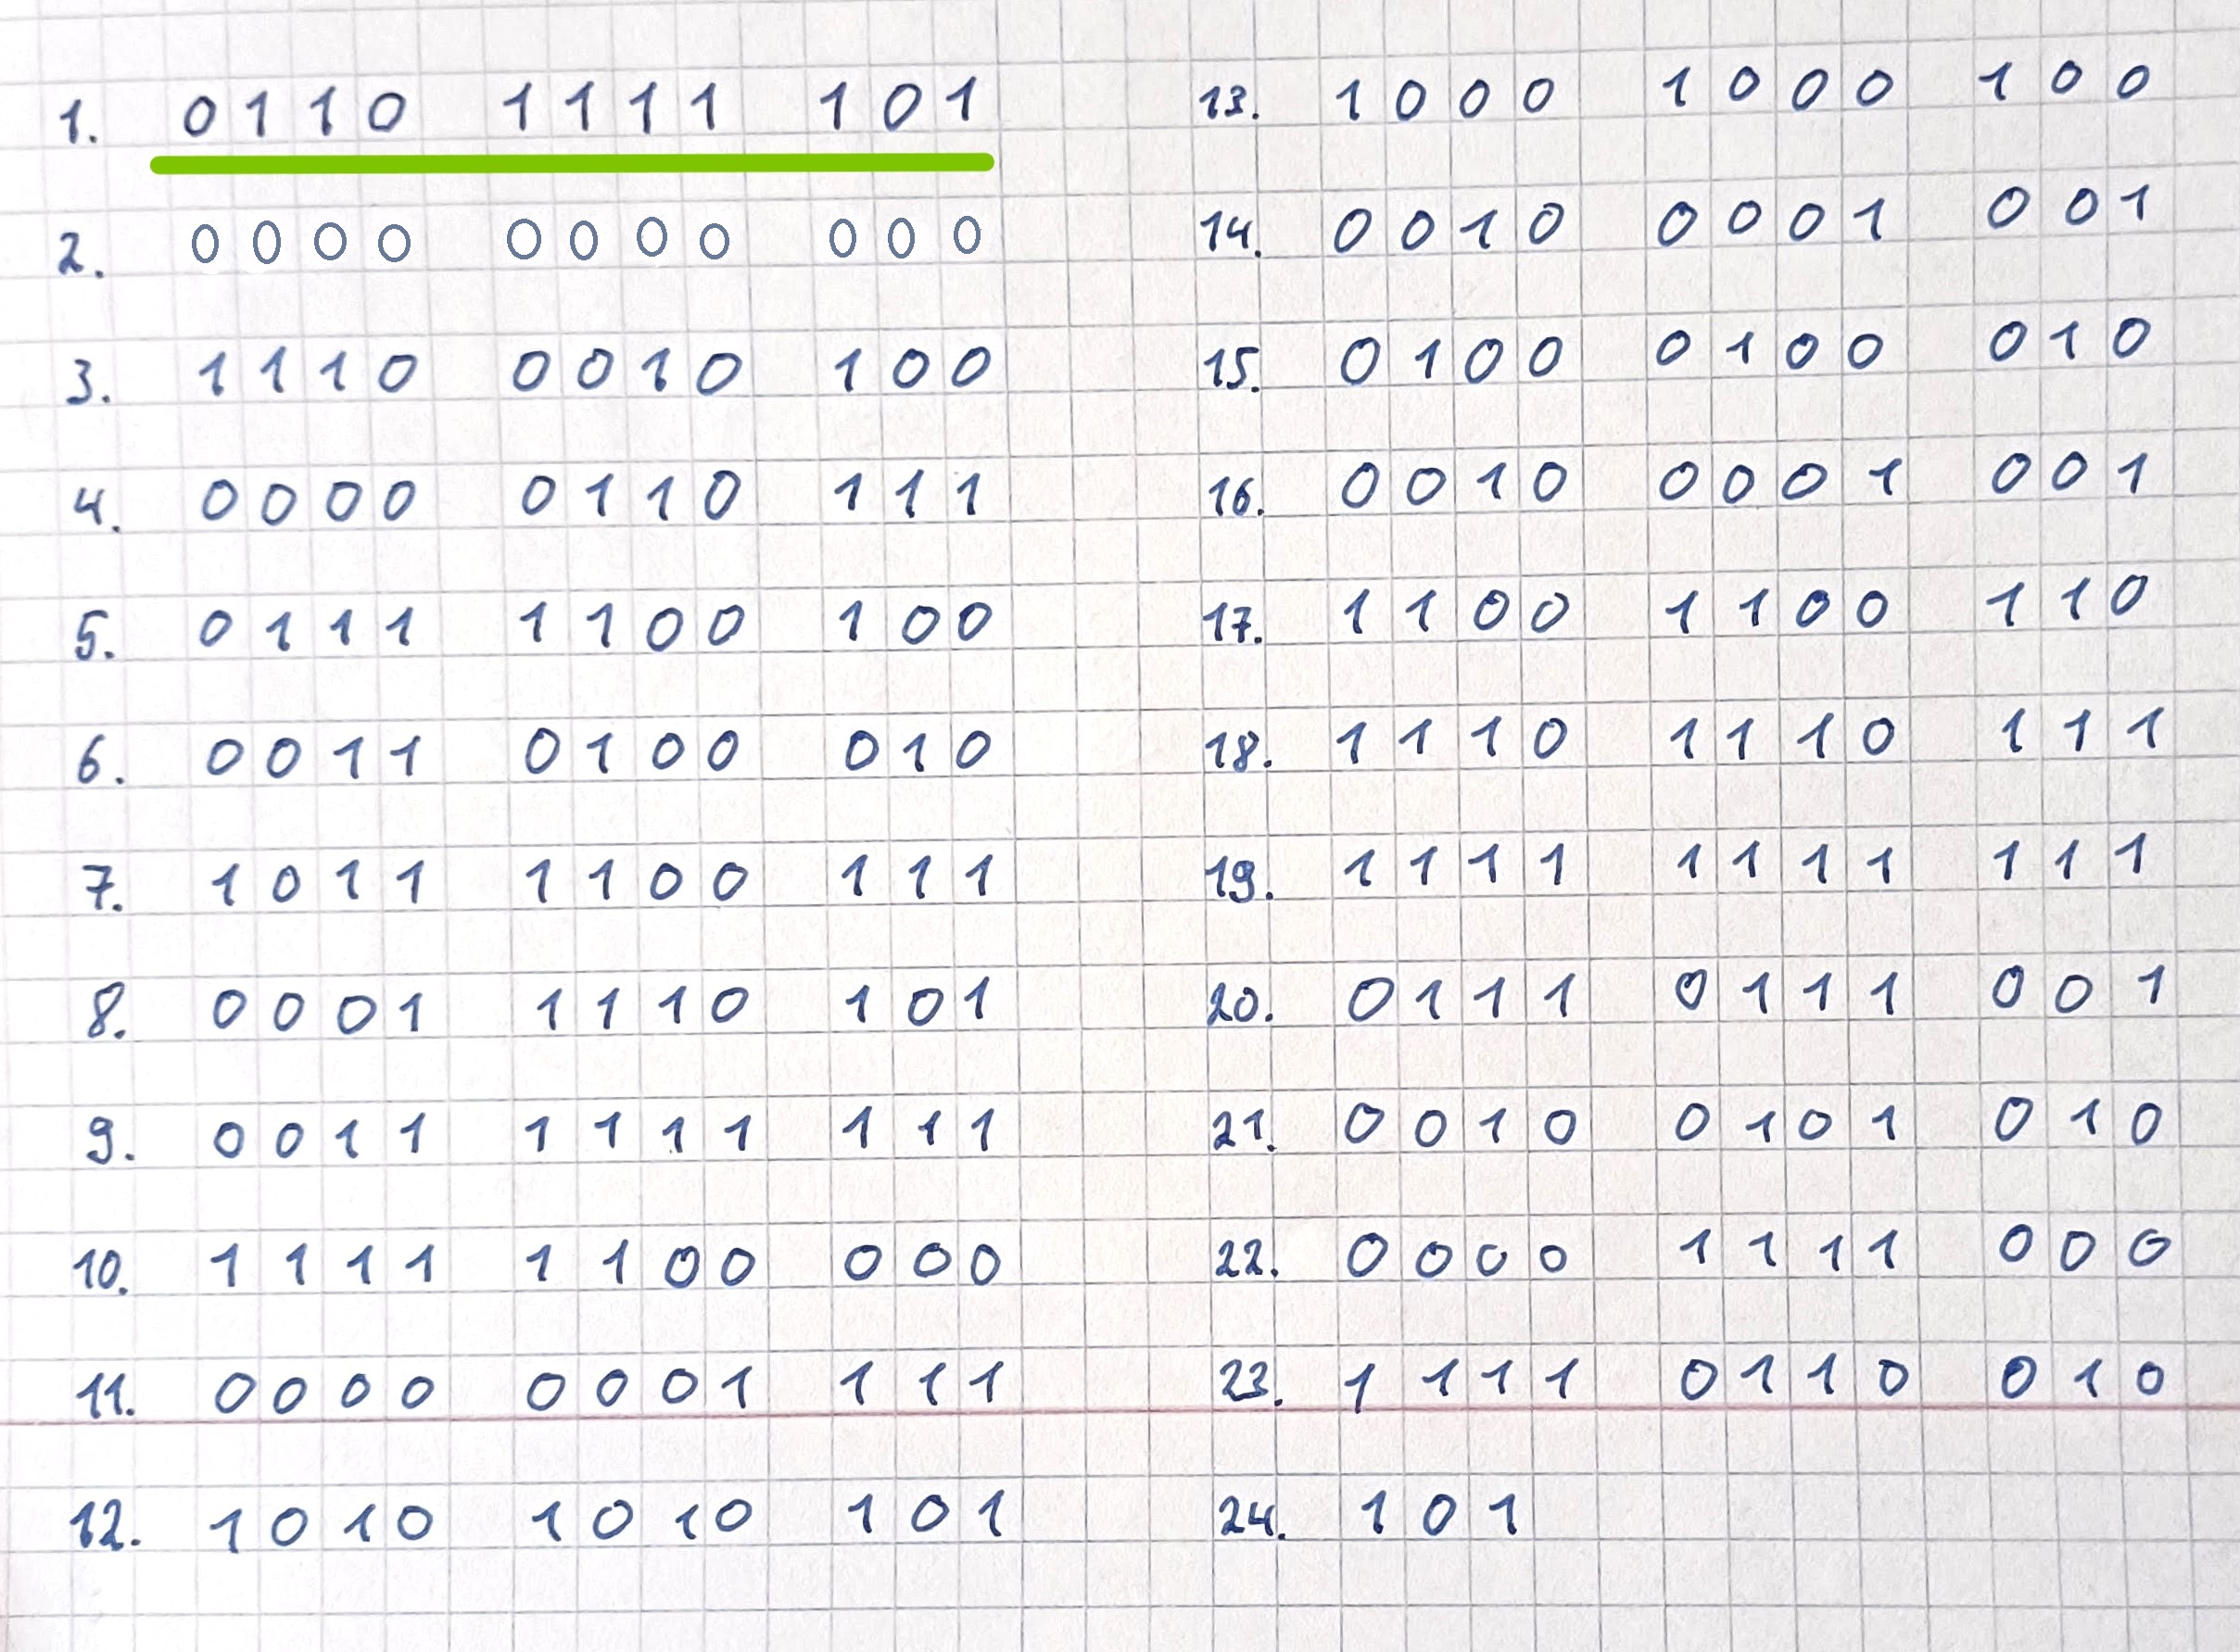 1. 0110 1111 101
2. 0000 0000 000
3. 1110 0010 100
4. 0000 0110 111
5. 0111 1100 100
6. 0011 0100 010
7. 1011 1100 111
8. 0001 1110 101
9. 0011 1111 111
10. 1111 1100 000
11. 0000 0001 111
12. 1010 1010 101
13. 1000 1000 100
14. 0010 0001 001
15. 0100 0100 010
16. 0010 0001 001
17. 1100 1100 110
18. 1110 1110 111
19. 1111 1111 111
20. 0111 0111 001
21. 0010 0101 010
22. 0000 1111 000
23. 1111 0110 010
24. 101